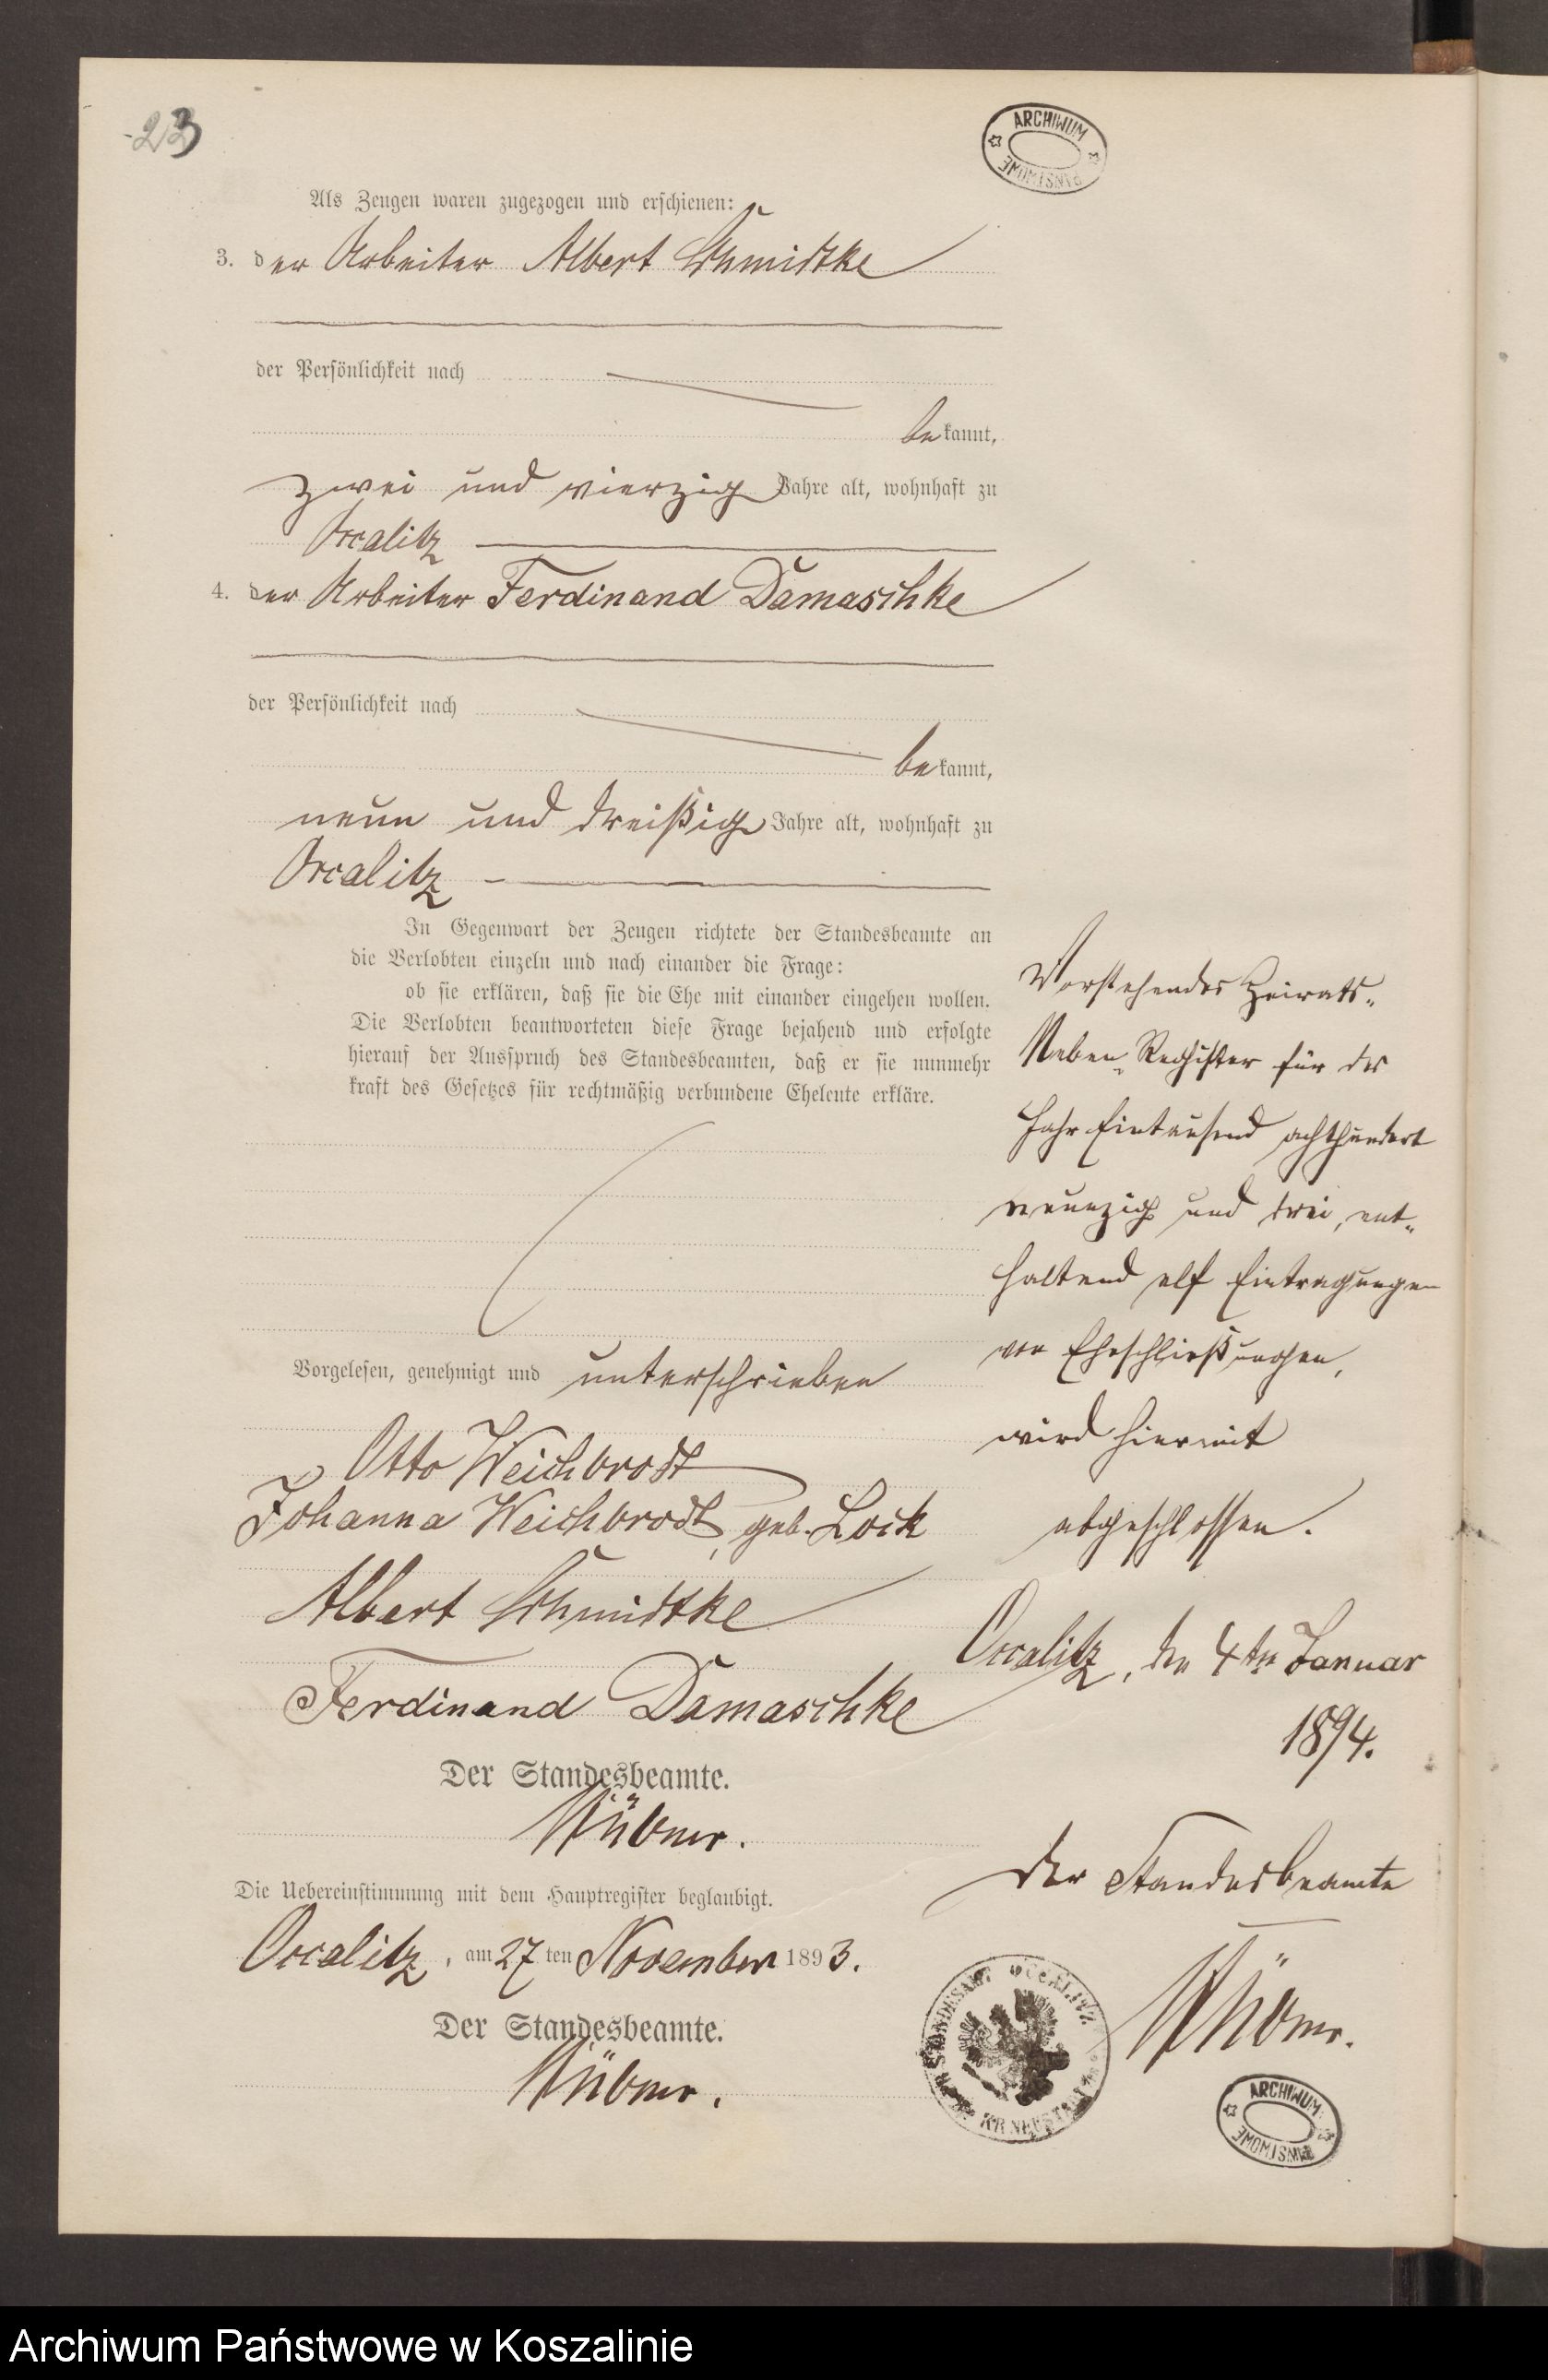 23
ARCHIWUM PAŃSTWOWE
Als Zeugen waren zugezogen und erschienen:
3. der Arbeiter Albert Schmidtke
der Persönlichkeit nach
bekannt,
zwei und vierzig Jahre alt, wohnhaft zu
Occalitz
4. der Arbeiter Ferdinand Damaschke
der Persönlichkeit nach
bekannt,
neun und dreißig Jahre alt, wohnhaft zu
Occalitz
In Gegenwart der Zeugen richtete der Standesbeamte an
die Verlobten einzeln und nach einander die Frage:
ob sie erklären, daß sie die Ehe mit einander eingehen wollen.
Die Verlobten beantworteten diese Frage bejahend und erfolgte
hierauf der Ausspruch des Standesbeamten, daß er sie nunmehr
kraft des Gesetzes für rechtmäßig verbundene Eheleute erkläre.
Vorgelesen, genehmigt und unterschrieben
Otto Weichbrodt
Johanna Weichbrodt, geb. Lock
Albert Schmidtke
Ferdinand Damaschke
Der Standesbeamte.
Die Uebereinstimmung mit dem Hauptregister beglaubigt.
Occalitz, am 27 ten November 1893.
Der Standesbeamte.
Vorstehendes Heirats-
Neben-Register für das
Jahr Eintausend achthundert
neunzig und drei, ent-
haltend elf Eintragungen
von Eheschließungen,
wird hiermit
abgeschlossen.
Occalitz, den 4ten Januar
1894.
Der Standesbeamte
STANDESAMT OCCALITZ
KR. NEUSTADT
ARCHIWUM PAŃSTWOWE
Archiwum Państwowe w Koszalinie